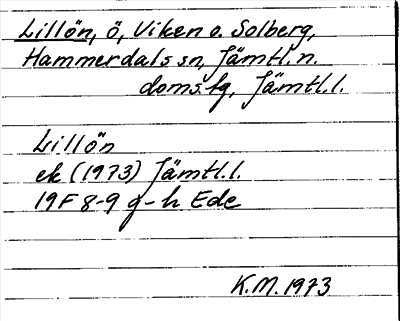 Lillön, ö, Viken o. Solberg,
Hammerdals sn, Jämtl. n.
doms.fg, Jämtl.l.
Lillön
ek (1973) Jämtl.l.
19F 8-9 g-h Ede
K.M. 1973